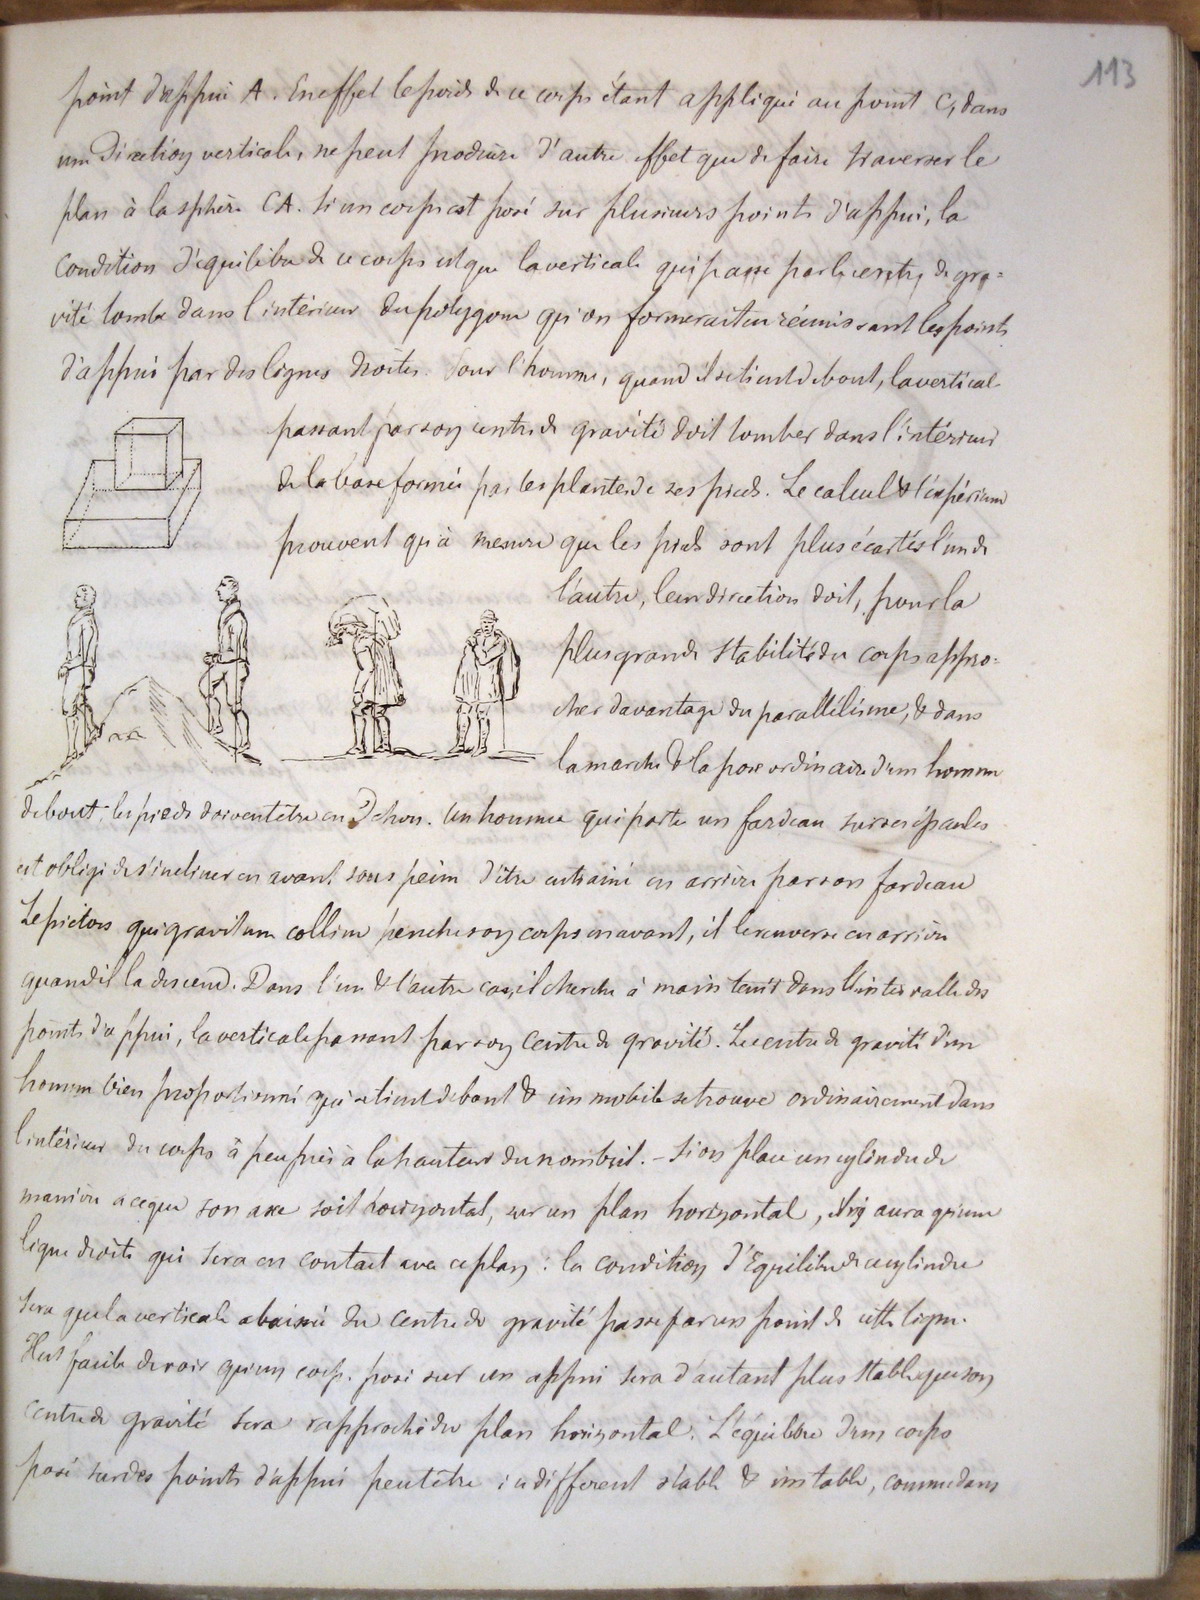 113
point d'appui A. En effet le poids de ce corps étant appliqué au point C, dans
une Direction verticale, ne peut produire d'autre effet que de faire traverser le
plan à la sphère CA. Si un corps est posé sur plusieurs points d'appui, la
Condition d'équilibre de ce corps est que la verticale qui passe par le centre de gra=
vité tombe dans l'intérieur du polygone qu'on formerait en réunissant les points
d'appui par des lignes droites. Pour l'homme, quand il se tient debout, la verticale
passant par son centre de gravité doit tomber dans l'intérieur
de la base formée par les plantes de ses pieds. Le calcul & l'expérience
prouvent qu'à mesure que les pieds sont plus écartés l'un de
l'autre, leur direction doit, pour la
plus grande stabilité du corps appro=
cher davantage du parallélisme, & dans
la marche & la pose ordinaire d'un homme
debout, les pieds doivent être en Dehors. Un homme qui porte un fardeau sur ses épaules
est obligé de s'incliner en avant sous peine d'être entrainé en arrière par son fardeau
Le piéton qui gravit une colline penche son corps en avant, il le renverse en arrière
quand il la descend. Dans l'un & l'autre cas, il cherche à maintenir dans l'intervalle des
points d'appui, la verticale passant par son centre de gravité. Le centre de gravité d'un
homme bien proportionné qui se tient debout & immobile se trouve ordinairement dans
l'intérieur du corps à peu près à la hauteur du nombril. – Si on place un cylindre de
manière a ce que son axe soit horizontal, sur un plan horizontal, il n'y aura qu'une
ligne droite qui sera en contact avec ce plan : la condition d'Equilibre de ce cylindre
sera que la verticale abaissée du centre de gravité passe par un point de cette ligne.
Il est facile de voir qu'un corps posé sur un appui sera d'autant plus stable que son
centre de gravité sera rapproché du plan horizontal. L'équilibre d'un corps
posé sur des points d'appui peut être indifférent stable & instable, comme dans